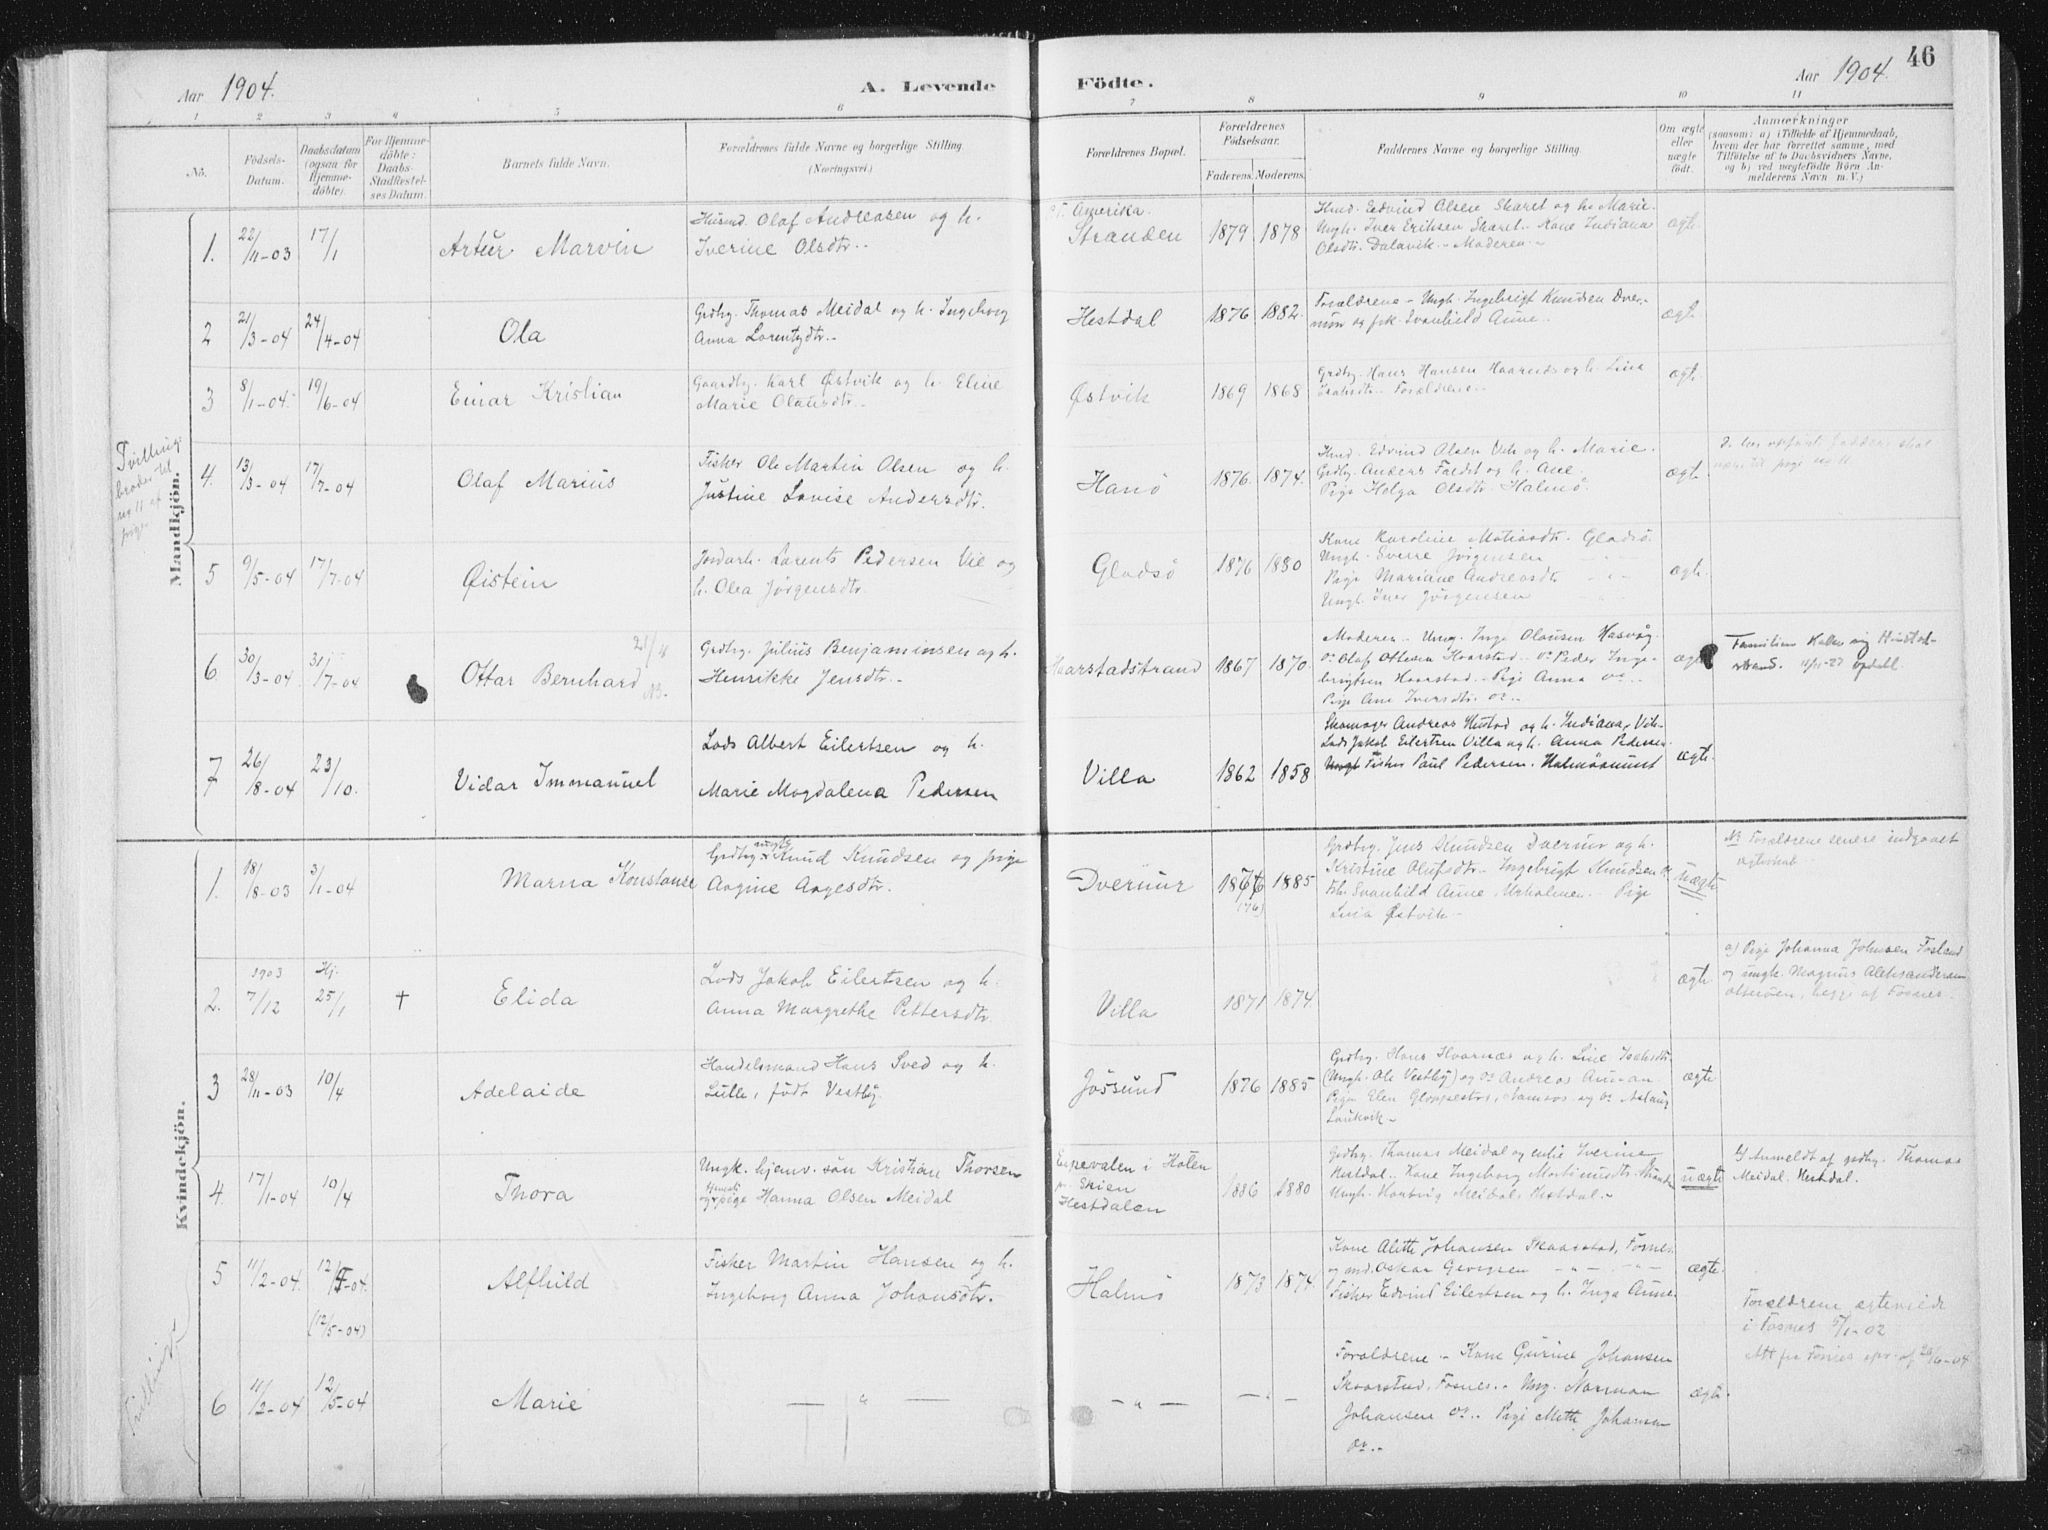 Aar 1904.
A. Levende
Födte.
Aar 1904.
46
1 2 3 4 5 6 7 8 9 10 11
No.
Födsels-
Datum.
Daabsdatum
(ogsaa for
Hjemme-
döbte).
For Hjemme-
döbte:
Daabs-
Stadfæstel-
ses Datum.
Barnets fulde Navn.
Forældrenes fulde Navne og borgerlige Stilling.
(Næringsvei.)
Forældrenes Bopæl.
Forældrenes
Födselsaar.
Faderens. Moderens.
Faddernes Navne og borgerlige Stilling.
Om ægte
eller
uægte
født.
Anmærkninger
(saasom: a) i Tilfælde af Hjemmedaab,
hvem der har forrettet samme, med
Tilføielse af to Daabsvidners Navne,
og b) ved uægtefødte Børn An-
melderens Navn m. V.)
Mandkjön.
1. 22/11-03 17/1
Artur Marvin
Husmd. Olaf Andreasen og h.
Iverine Olsdtr..
p.t. Amerika.
Stranden
1879 1878
Hmd. Edvind Olsen Skaret og h. Marie.
Ungk. Iver Eriksen Skaret.. Kone Indiana
Olsdtr. Dalavik.. Moderen..
ægte.
2 21/3-04 24/4-04
Ola
Grdbg. Thomas Meidal og h. Ingeborg
Anna Lorentzdtr..
Hestdal
1876 1882.
Forældrene - Ungk. Ingebrigt Knudsen Dver-
nur og frk Svanhild Aune..
ægte.
3 8/1-04. 19/6-04
Einar Kristian
Gaardbg. Karl Østvik og h. Eline
Marie Olausdtr..
Østvik
1869 1868
Grdbg. Hans Hansen Haarnes og h. Lina
Isaksdtr.. Forældrene..
ægte.
Tvilling-
broder til
no 11 af
piger
4. 13/3-04 17/7-04
Olaf Marius
Fisker Ole Martin Olsen og h.
Justine Lovise Andersdtr.
Hanö
1876. 1874.
Hmd. Edvind Olsen Oth og h. Marie.
Grdbg. Anders Faldet og h. Ane.
Pige Helga Olsdtr. Halmö.
ægte.
5 9/5-04 17/7-04
Øistein
Jordarb. Lorents Pedersen Vie og
h. Olea Jørgensdtr.
Gladsö
1876 1880
Kone Karoline Matiasdtr. Gladsö.
Ungk. Sverre Jörgensen
Pige Mariane Andreasdtr - " -
Ungk. Iver Jörgensen - " -
ægte.
6 30/3-04. 31/7-04
Ottar Bernhard
21/4
NB.
Grdbg. Julius Benjaminsen og h.
Henrikke Jensdtr.-
Haarstadstrand
1867 1870
Moderen - Ung. Inge Olausen Hasvåg.
do Olaf Ottesen Haarstad.. do Peder Inge-
brigtsen Haarstad.. Pige Anna do..
Pige Ane Iversdtr. do..
ægte
Familien kaller sig Hustad-
strand. 11/11-27 Opdahl.
7 26/8-04 23/10.
Vidar Immanuel
Lods Albert Eilertsen og h.
Marie Magdalena Pedersen
Villa
1862 1858
Skomager Andreas Hustad og h. Indiana, Vik-
Lods Jakob Eilertsen Villa og h. Anna Pedersen
Ungk Fisker Paul Pedersen. Halmösundet
ægte.
Kvindekjön.
1. 18/8-03 3/1-04
Marna Konstanse
Grdbg. ungk. Knud Knudsen og pige
Aagine Aagesdtr.
Dvernur
1876 1885
(76)
Grdbg. Jens Knudsen Dvernur og h.
Kristine Olufsdtr.. Ingebrigt Knudsen do
Frk. Svanhild Aune, Urholmen.. Pige
Lina Østvik..
uægte
NB Forældrene senere indgaaet
ægteskab..
2. 1903 7/12 Hj. 25/1 +
Elida
Lods Jakob Eilertsen og h.
Anna Margrethe Pettersdtr.
Villa
1871 1874.
ægte.
a) Pige Johanna Johnsen Fosland
og ungk. Magnus Aleksandersen
Otterøen, begge af Fosnes.
3 28/11-03 10/4
Adelaide
Handelsmand Hans Sved og h.
Lulle, född Vestby.
Jössund
1876 1885
Grdbg. Hans Hvarnæs og h. Line Isaksdtr.
(Ungk. Ole Vestby) og do Andreas Aunan
Pigen Elen Gloppestad, Namsos. og do Aslaug
Laukvik-
ægte
4 17/1-04 10/4
Thora
Ungk. hjemv. sön Kristian Thorsen
og pige Hanna Olsen Meidal
Espevalen i Holen
pr. Skien
Hestdalen
1886 1880
Grdbg. Thomas Meidal og enke Iverine
Hestdal.. Kone Ingeborg Martinusdtr. Stranden
Ungk. Hartvig Meidal, Hestdal.-
uægte
b) Anmeldt af grdbg. Thomas
Meidal. Hestdal.
5 11/2-04 12/5-04.
(12/5-04)
Alfhild
Fisker Martin Hansen og h.
Ingeborg Anna Johansdtr.
Halmö
1873 1874.
Kone Alette Johansen Skaarstad, Fosnes.
og md. Oskar Georgsen - " - - " -
Fisker Edvind Eilertsen og h. Inga Aune.
ægte.
Forældrene ægteviede
i Fosnes 5/1-02
Att fra Fosnes
Tvillinge
6 11/2-04 12/5-04
Marie
— " —
- " -
— " —
Forældrene - Kone Gurine Johansen
Skaarstad, Fosnes.. Ung. Norman
Johansen do.. Pige Mette Johansen
do..
ægte.